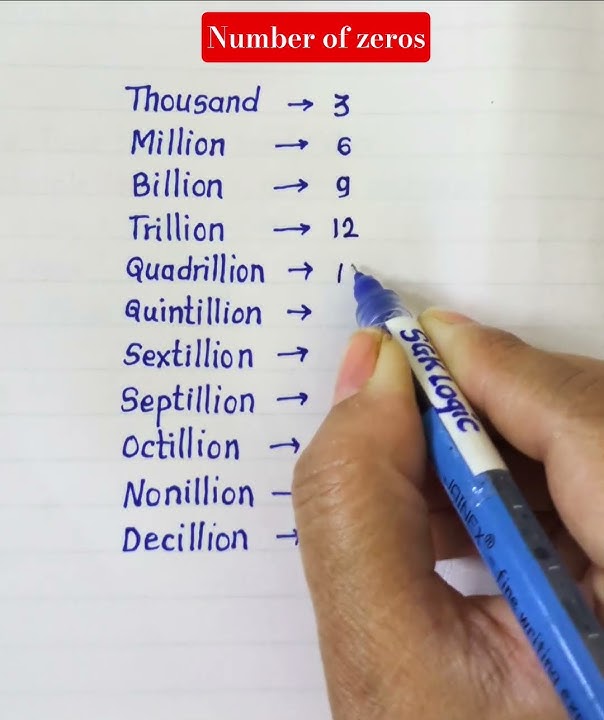 Number of zeros
Thousand → 3
Million → 6
Billion → 9
Trillion → 12
Quadrillion → 1
Quintillion →
Sextillion →
Septillion →
Octillion →
Nonillion –
Decillion →
SGK LOGIC
JOINEX®
fine writing